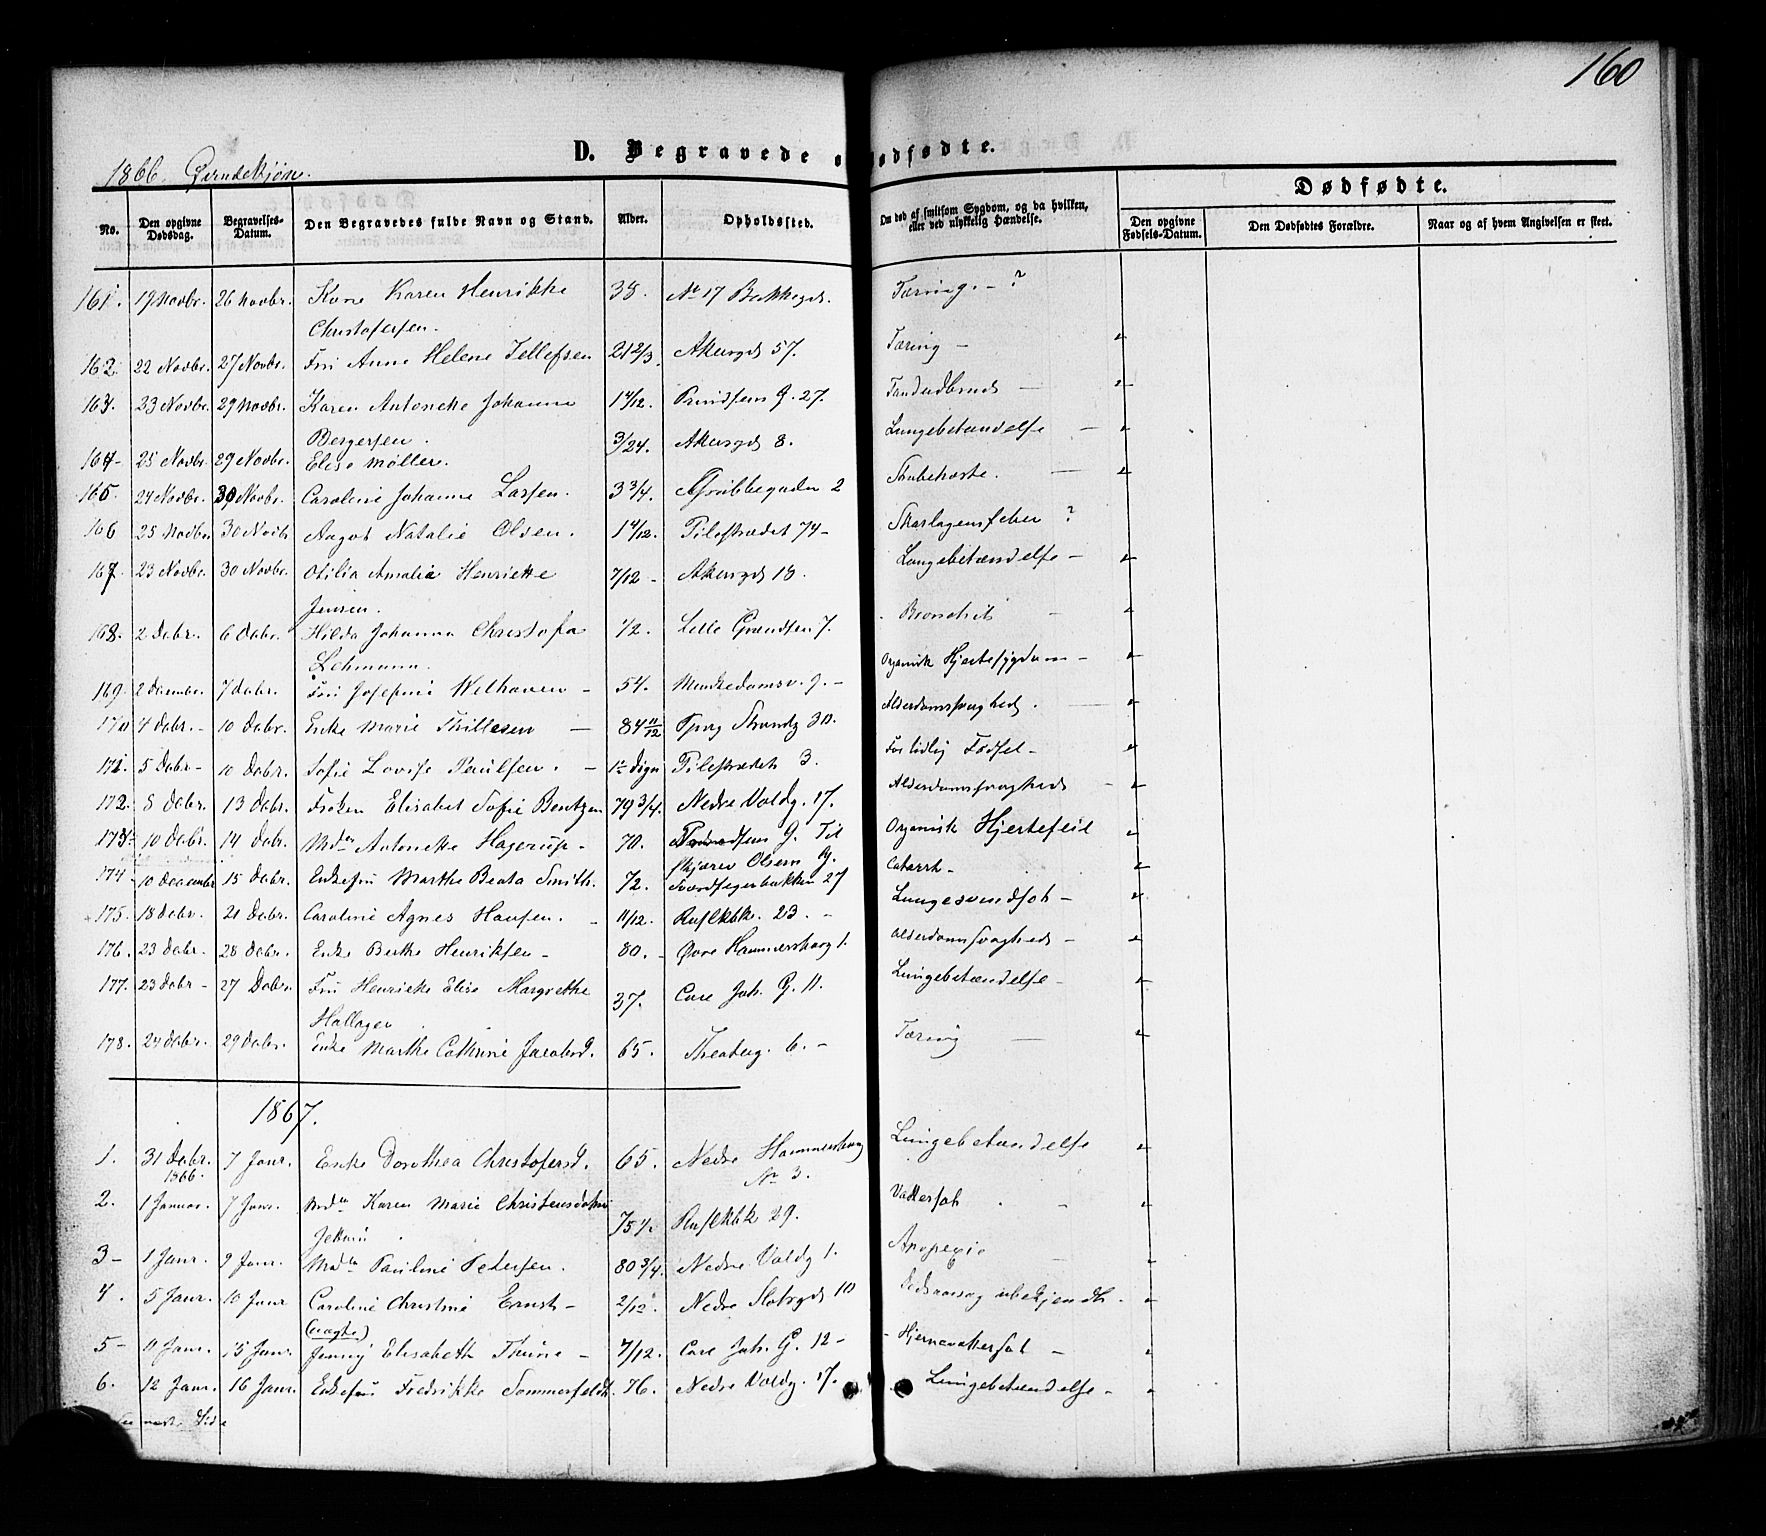 160
D. Begravede o dødfødte.
1866. Qvindekjøn.
Dødfødte.
No.
Den opgivne Dødsdag.
Begravelses-Datum.
Den Begravedes fulde Navn og Stand.
Alder.
Opholdssted.
Om død af smitsom Sygdom, og da hvilken, eller ved ulykkelig Hændelse.
Den opgivne Fødsels-Datum.
Den Dødfødtes Forældre.
Naar og af hvem Angivelsen er skeet.
161. 19 Novbr. 26 Novbr. Kone Karen Henrikke 38. No 17 Bakkegd. Tæring. - ?
Christofersen.
162. 22 Novbr. 27 Novbr. Frk Anne Helene Tellefsen 21 2/3. Akersgd 57. Tæring -
163. 23 Novbr. 29 Novbr. Karen Antonette Johanne 1 4/12. Prindsens G. 27. Tandudbrud -
Bergersen.
164 - 25 Novbr. 29 Novbr. Elise Møller. 3/24. Akersgd 8. Lungebetændelse -
165. 24 Novbr. 30 Novbr. Caroline Johanne Larsen. 3 3/4. Grubbegaden 2 Strubehoste. -
166 25 Novbr. 30 Novbr. Aagot Natalie Olsen. 1 4/12. Pilestrædet 74 - Skarlagensfeber ?
167. 23 Novbr. 30 Novbr. Otilia Amalie Henriette 7/12 - Akersgd 18. Lungebetændelse -
Jensen.
168. 2 Debr. 6 Debr. Hilda Johanna Christofa 1/2. Lille Grændsen 7. Bronchit -
Lehmann.
169. 2 December 7 Debr. Frk Josefine Welhaven - 54. Munkedamsv. 9. - Organisk Hjertesygdom -
170 4 Debr. - 10 Debr. Enke Marie Thillesen - 84 11/12 Tjuvg Strandg 30. Alderdomssvaghed. -
171. 5 Debr - 10 Debr. Sofie Lovise Paulsen. - 1 1/2 Dage Pilestrædet 3. For tidlig Fødsel -
172. 8 Debr. 13 Debr. Frøken Elisabet Sofie Bentzen 79 3/4. Nedre Voldg. 17. Alderdomssvaghed -
173. 10 Debr. 14 Debr. Mdm Antonette Hagerup - 70. G. Til Organisk Hjertefeil
Olsens G.
174 - 10 December 15 Debr. Enkefru Marthe Beata Smith. 72. Sværdfegerbakken 27 Catarrh -
175. 18 Debr. 21 Debr. Caroline Agnes Hansen. - 11/12. Rusl.kbk. 23. - Lungesvindsot -
176. 23 Debr. 28 Debr. Enke Berthe Henriksen - 80. - Øvre Hammersborg 1. Alderdomssvaghed -
177. 23 Debr - 27 Debr. Fru Henriette Elise Margrethe 37. Carl Joh. G. 11. Lungebetændelse -
Hallager
178. 24 Debr. 29 Debr. Enke Marthe Cathrine Jacobsd. 65. Theaterg. 6. - Tæring -
1867.
1. 31 Debr. 7 Janr. Enke Dorothea Christofersd. 65. Nedre Hammersborg Lungebetændelse
1866. No 3.
2. 1 Januar. 7 Janr. Mdm Karen Marie Christensdatter 75 1/2 Rusl.kbk 29. Vattersot -
3 - 1 Janr. 9 Janr. Mdm Pauline Petersen. 80 3/4. Nedre Voldg 1. Apopexie -
4. 5 Janr. 10 Janr Caroline Christine Ernst - 2/12. Nedre Slotsgd 10 Dødsaarsag ubekjendt -
(uægte)
5 - 11 Janr. 15 Janr. Jenny Elisabeth Thrine - 7/12. Carl Joh. G. 12 - Hjernevattersot -
6. 12 Janr. 16 Janr. Enkefru Fredrikke Sommerfeldt. 76. Nedre Voldg. 17. Lungebetændelse -
næste Side